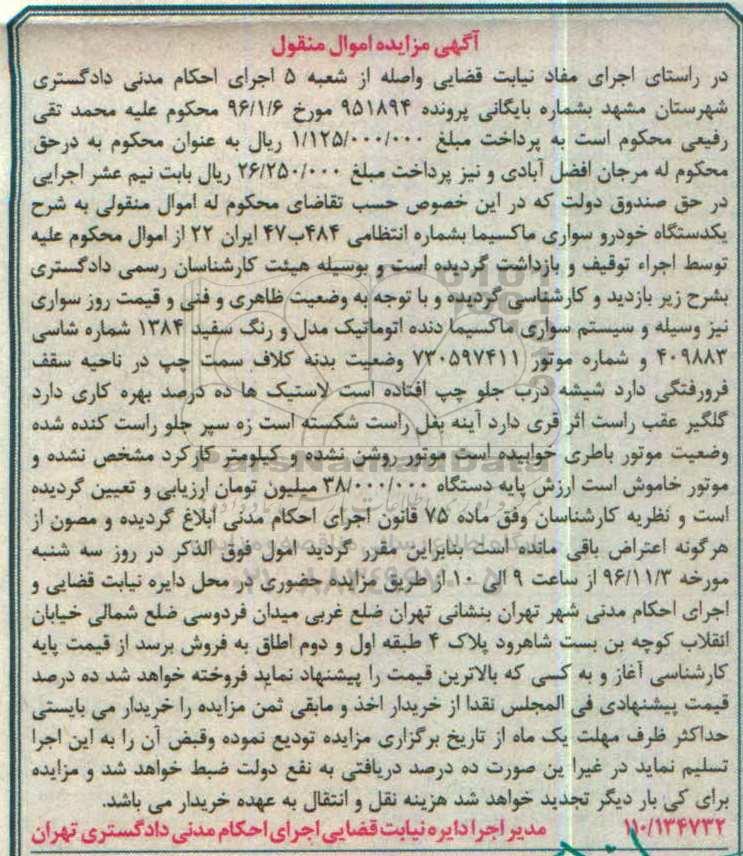 آگهی مزایده اموال منقول
در راستای اجرای مفاد نیابت قضایی واصله از شعبه ۵ اجرای احکام مدنی دادگستری
شهرستان مشهد بشماره بایگانی پرونده ۹۵۱۸۹۴ مورخ ۹۶/۱/۶ محکوم علیه محمد تقی
رفیعی محکوم است به پرداخت مبلغ ۱/۱۲۵/۰۰۰/۰۰۰ ریال به عنوان محکوم به درحق
محکوم له مرجان افضل آبادی و نیز پرداخت مبلغ ۲۶/۲۵۰/۰۰۰ ریال بابت نیم عشر اجرایی
در حق صندوق دولت که در این خصوص حسب تقاضای محکوم له اموال منقولی به شرح
یکدستگاه خودرو سواری ماکسیما بشماره انتظامی ۴۸۴ب۴۷ ایران ۲۲ از اموال محکوم علیه
توسط اجراء توقیف و بازداشت گردیده است و بوسیله هیئت کارشناسان رسمی دادگستری
بشرح زیر بازدید و کارشناسی گردیده و با توجه به وضعیت ظاهری و فنی و قیمت روز سواری
نیز وسیله و سیستم سواری ماکسیما دنده اتوماتیک مدل و رنگ سفید ۱۳۸۴ شماره شاسی
۴۰۹۸۸۳ و شماره موتور ۷۳۰۵۹۷۴۱۱ وضعیت بدنه کلاف سمت چپ در ناحیه سقف
فرورفتگی دارد شیشه درب جلو چپ افتاده است لاستیک ها ده درصد بهره کاری دارد
گلگیر عقب راست اثر قری دارد آینه بغل راست شکسته است زه سپر جلو راست کنده شده
وضعیت موتور باطری خوابیده است موتور روشن نشده و کیلومتر کارکرد مشخص نشده و
موتور خاموش است ارزش پایه دستگاه ۳۸/۰۰۰/۰۰۰ میلیون تومان ارزیابی و تعیین گردیده
است و نظریه کارشناسان وفق ماده ۷۵ قانون اجرای احکام مدنی ابلاغ گردیده و مصون از
هرگونه اعتراض باقی مانده است بنابراین مقرر گردید امول فوق الذکر در روز سه شنبه
مورخه ۹۶/۱۱/۳ از ساعت ۹ الی ۱۰ از طریق مزایده حضوری در محل دایره نیابت قضایی و
اجرای احکام مدنی شهر تهران بنشانی تهران ضلع غربی میدان فردوسی ضلع شمالی خیابان
انقلاب کوچه بن بست شاهرود پلاک ۴ طبقه اول و دوم اطاق به فروش برسد از قیمت پایه
کارشناسی آغاز و به کسی که بالاترین قیمت را پیشنهاد نماید فروخته خواهد شد ده درصد
قیمت پیشنهادی فی المجلس نقدا از خریدار اخذ و مابقی ثمن مزایده را خریدار می بایستی
حداکثر ظرف مهلت یک ماه از تاریخ برگزاری مزایده تودیع نموده وقبض آن را به این اجرا
تسلیم نماید در غیرا ین صورت ده درصد دریافتی به نفع دولت ضبط خواهد شد و مزایده
برای کی بار دیگر تجدید خواهد شد هزینه نقل و انتقال به عهده خریدار می باشد.
۱۱۰/۱۳۴۷۳۲ مدیر اجرا دایره نیابت قضایی اجرای احکام مدنی دادگستری تهران
ParsNamadData